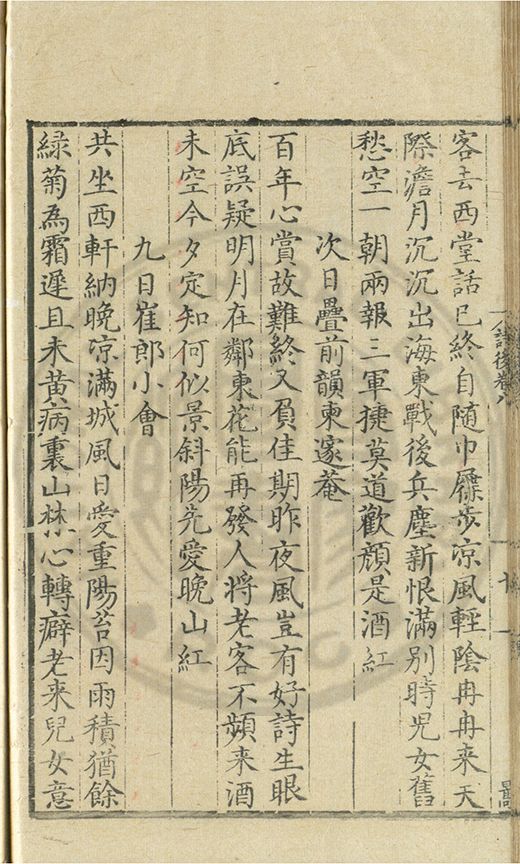 客去西堂話已終自随巾屨步涼風輕陰冉冉来天
際澹月沉沉出海東戰後兵塵新恨滿别時児女舊
愁空一朝兩報三軍捷莫道歡顔是酒紅
次日疊前韻柬邃菴
百年心賞故難終又負佳期昨夜風豈有好詩生眼
底誤疑明月在鄰東花能再發人將老客不頻来酒
未空今夕定知何似景斜陽先愛晚山紅
九日崔郎小會
共坐西軒納晚凉滿城風日愛重陽苔因雨積猶餘
綠菊為霜遲且未黄病裏山林心轉癖老来兒女意
詩後卷八
十一